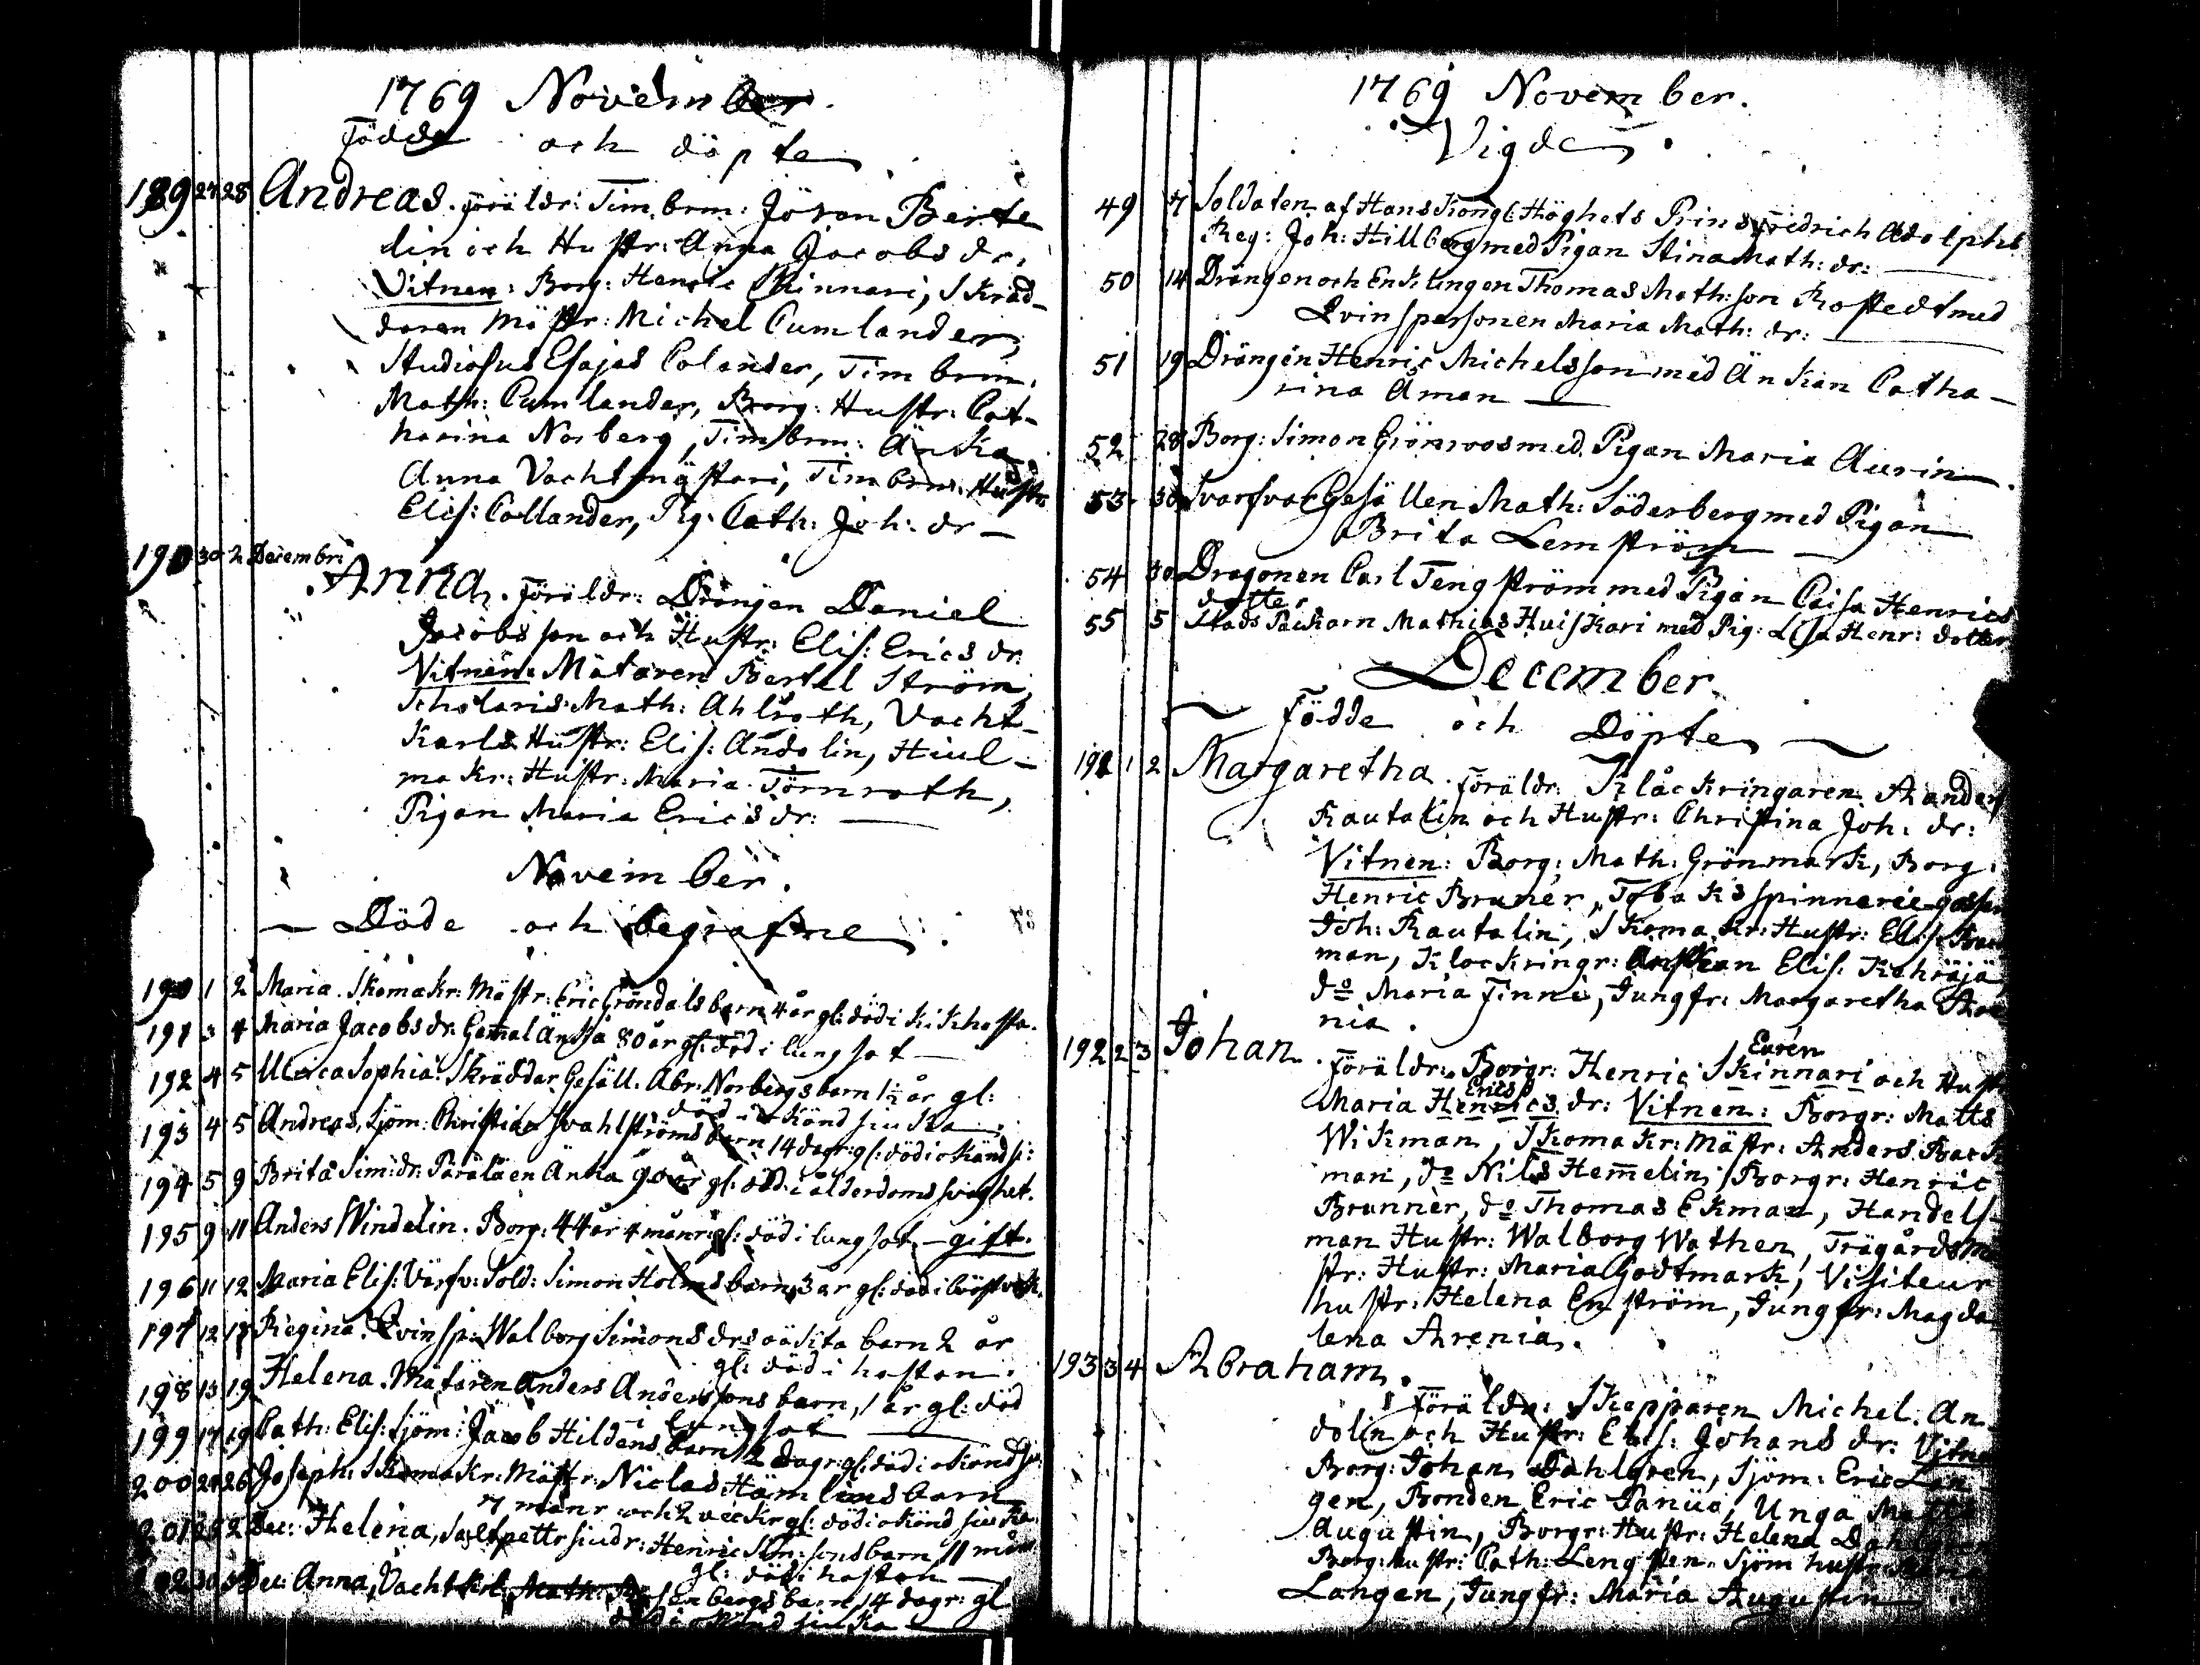 1769 November.
Födde och döpte
189 27 28 Andreas. Föräldr: Timbrm: Jöran Berte
lin och Hustr: Anna Jacobs dr,
Vitnen: Borg: Henric Skinnari, Skräd-
daren Mästr: Michel Cumlander,
Studiosus Esajas Colander, Timbrm.
Math: Cumlander, Borg: Hustr: Cat-
harina Norberg, Timbrm: Änka
Anna Vachtmästari, Timbrm: Hustr
Elis: Collander, Pig: Cath: Joh: dr —
190 30 2 Decembr:
Anna. Föräldr: Drängen Daniel
Jacobsson och Hustr: Elis: Erics dr:
Vitnen: Mätaren Bertel Ström,
Scholaris Math: Ahlroth, Vacht-
Karls Hustr: Elis: Andolin, Hiul-
makr: Hustr: Maria Törnroth,
Pigan Maria Erics dr: —
November.
— Döde och begrafne.
190 1 2 Maria. Skomakr: Mästr: Eric Gröndals barn 4 år gl: död i kikhosta.
191 3 4 Maria Jacobs dr. Gamal Änka 80 år gl: död i lungsot —
192 4 5 Ulrica Sophia. Skräddar Gesäll: Abr: Norbergs barn 1½ år gl:
död i okänd siuka —
193 4 5 Andreas, Sjöm: Christian Svahlströms barn 14 dagr: gl: död i okänd si:
194 5 9 Brita Sim: dr: Pärälä en Änka 90 år gl: död i ålderdoms svaghet.
195 9 11 Anders Windelin. Borg: 44 år 4 månr: gl: död i lungsot — gift.
196 11 12 Maria Elis: Värfv: Sold: Simon Holms barn 3 år gl: död i bröstvärk.
197 12 17 Regina. Qvinsp: Walborg Simons drs oäkta barn 2 år
gl: död i hostan.
198 13 19 Helena. Mätaren Anders Anderssons barn, 1 år gl: död
i lungsot —
199 17 19 Cath: Elis: Sjöm: Jacob Hildens barn 2 dagr: gl: död i okänd si:
200 24 26 Joseph. Skomakr: Mästr: Niclas Hämlins barn
7 månr och 2 veckr gl: död i okänd siuka.
201 2 Dec: Helena, Saltpettr siudr: Henric barn 11 mån:
gl: död i hostan —
202 30 Dec: Anna, Vachtkrl: Math: bergs barn 14 dagr: gl
död i okänd siuka —
1769 November.
Vigde.
49 7 Soldaten af Hans Kongl: Höghets Prins Fredrich Adolphs
Reg: Joh: Hillberg med Pigan Stina Math: dr: —
50 14 Drängen och Enklingen Thomas Math:son Rostedt med
Qvinspersonen Maria Math: dr: —
51 19 Drängen Henric Michelsson med Änkan Catha-
rina Åman —
52 28 Borg: Simon Grönroos med Pigan Maria Aurin.
53 30 Svarfvar Gesällen Math: Söderberg med Pigan
Brita Lemström —
54 30 Dragonen Carl Tengström med Pigan Caisa Henrics
dotter
55 5 Stads Packarn Mathias Huiskari med Pig: Lisa Henr: dotter
December.
Födde och Döpte
191 1 2 Margaretha. Föräldr: Klåckringaren Anders
Rautalin och Hustr: Christina Joh: dr:
Vitnen: Borg: Math: Grönmark, Borg:
Henric Bruner, Tobaks spinnerie gossen
Joh: Rautalin, Skomakr: Hustr: Elis: Back
man, Klockringr: Änkan Elis: Kahräjä
do Maria Finne, Jungfr: Margaretha Are
nia.
192 2 3 Johan. Föräldr: Borgr: Henric Skinnari och Hustr
Eurén
Maria Henrics dr: Vitnen: Borgr: Matts
Erics
Wikman, Skomakr: Mästr: Anders Back
man, do Nils Hemelin, Borgr: Henric
Brunnèr, do Thomas Ekman, Handels-
man Hustr: Walborg Wathen, Trägårdsmä
str: Hustr: Maria Godtmark, Visiteur
hustr: Helena Enström, Jungfr: Magda
lena Arenia.
193 3 4 Abraham.
Föräldr: Skepparen Michel An
dolin och Hustr: Elis: Johans dr: Vitne
Borg: Johan Dahlgren, Sjöm: Eric Lan
gen, Bonden Eric Panüa, Unga Matts
Augustin, Borgr: Hustr: Helena Dahlgren
Borg: hustr: Cath: Lengsten. Sjöm hustr: Maria
Langen, Jungfr: Maria Augustin —